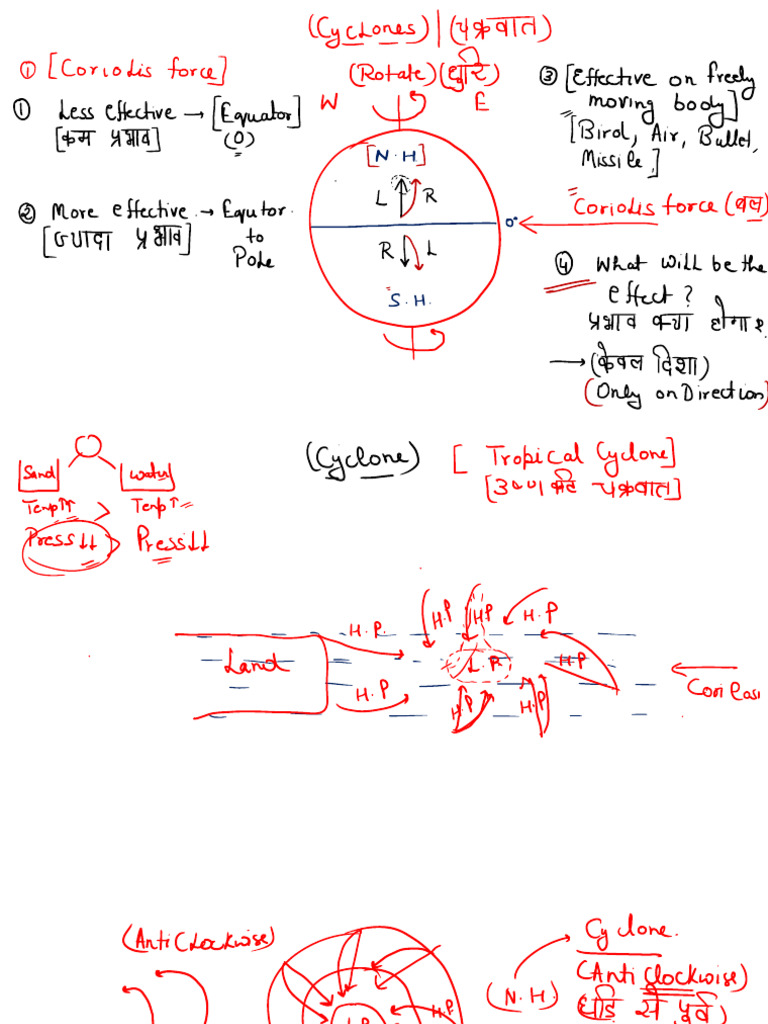 (Cyclones) | (चक्रवात)
① [Coriolis force]
(Rotate) (घुर्णि)
W E
① Less effective → [Equator]
[कम प्रभाव] (0)
② More effective → Equtor
to
Pole
[ज्यादा प्रभाव]
[N.H]
L R
0°
R L
S.H.
③ [Effective on freely
moving body]
[Bird, Air, Bullet,
Missile]
Coriolis force (बल)
④ What will be the
effect?
प्रभाव क्या होगा
→ (केवल दिशा)
(Only on Direction)
Sand Water
Temp↑↑ > Temp↑
Press↓↓ > Press↓↓
(Cyclone) [Tropical Cyclone]
[उष्ण कटि चक्रवात]
Land
H.P. H.P H.P H.P
L.P H.P
H.P H.P H.P
(Anti Clockwise)
H.P.
L.P
(N.H.)
Cyclone.
(Anti clockwise)